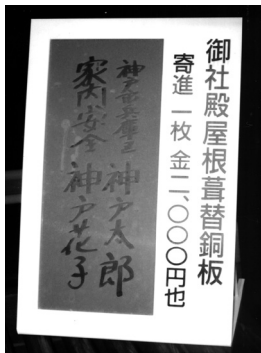 御社殿屋根葺替銅板
寄進 一枚 金二、〇〇〇円也
神戸市兵庫区
神戸太郎
家内安全
神戸花子